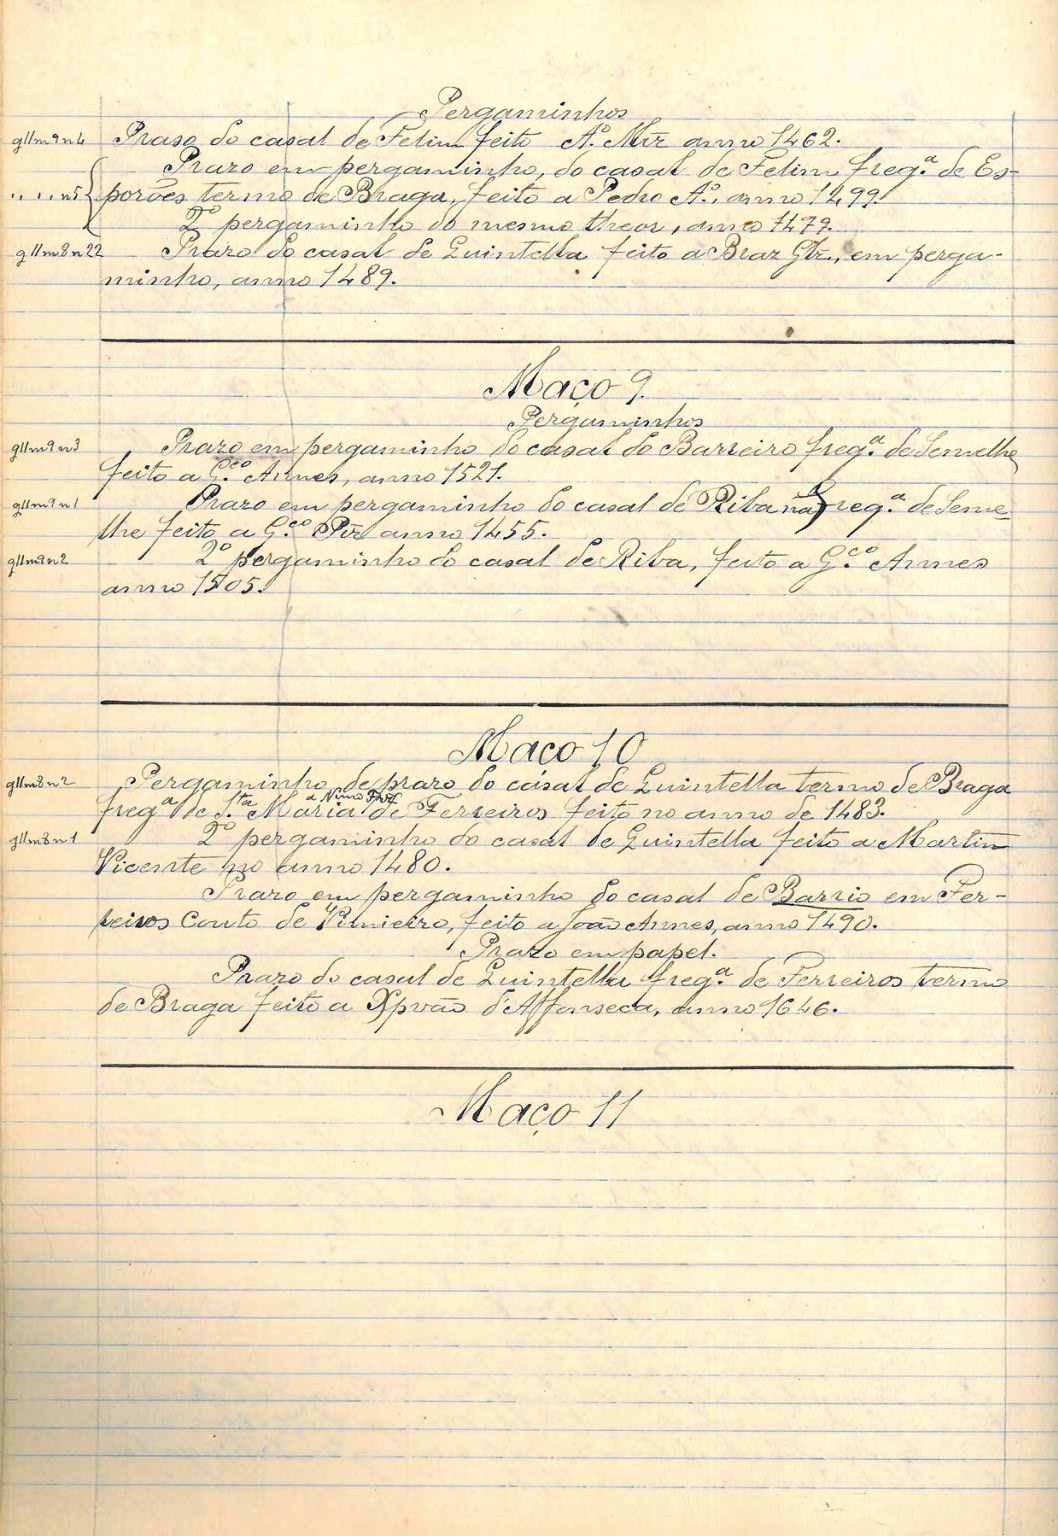 Pergaminhos
gllm9n4 Praso do casal de Felim feito A.º Miz anno 1462.
Prazo em pergaminho, do casal de Felim freg.ª de Es-
" . . . n5 porões termo de Braga, feito a Pedro A.º, anno 1499
2º pergaminho do mesmo theor, anno 1499.
gllm8n22 Prazo do casal de Quintella feito a Braz Glz, em perga-
minho, anno 1489.
Maço 9.
Pergaminhos
gllm9n3 Prazo em pergaminho do casal do Barreiro freg.ª de Semelhe
feito a G.ço Annes, anno 1521.
gllm9n1 Prazo em pergaminho do casal de Riba na freg.ª de Seme-
lhe feito a G.ço Piz anno 1455.
gllm9n2 2º pergaminho do casal de Riba, feito a G.ço Annes
anno 1505.
Maço 10
gllm8n2 Pergaminho de prazo do casal de Quintella termo de Braga
freg.ª de S.ta Maria de Ferreiros feito no anno de 1483.
gllm8n1 2º pergaminho do casal de Quintella feito a Martim
Vicente no anno 1480.
Prazo em pergaminho do casal de Barrio em Fer-
reiros Couto de Vimieiro, feito a João Annes, anno 1490.
Prazo em papel.
Prazo do casal de Quintella freg.ª de Ferreiros termo
de Braga feito a Xpvão d'Affonseca, anno 1646.
Maço 11